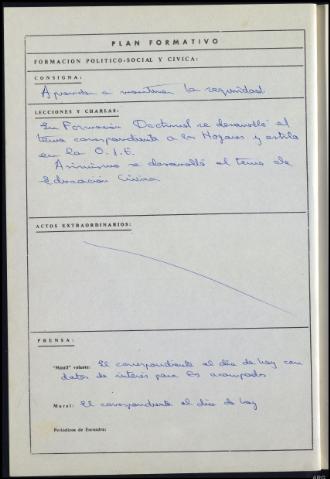 PLAN FORMATIVO
FORMACION POLITICO-SOCIAL Y CIVICA:
CONSIGNA:
Aprender a mantener la seguridad
LECCIONES Y CHARLAS:
En Formación Doctrinal se desarrolló el
tema correspondiente a los Hogares y estilo
en la O.J.E.
Asimismo se desarrolló el tema de
Educación Cívica
ACTOS EXTRAORDINARIOS:
PRENSA:
volante: El correspondiente al día de hoy con
datos de interés para los acampados
Mural: El correspondiente al día de hoy
Periódicos de Escuadra: